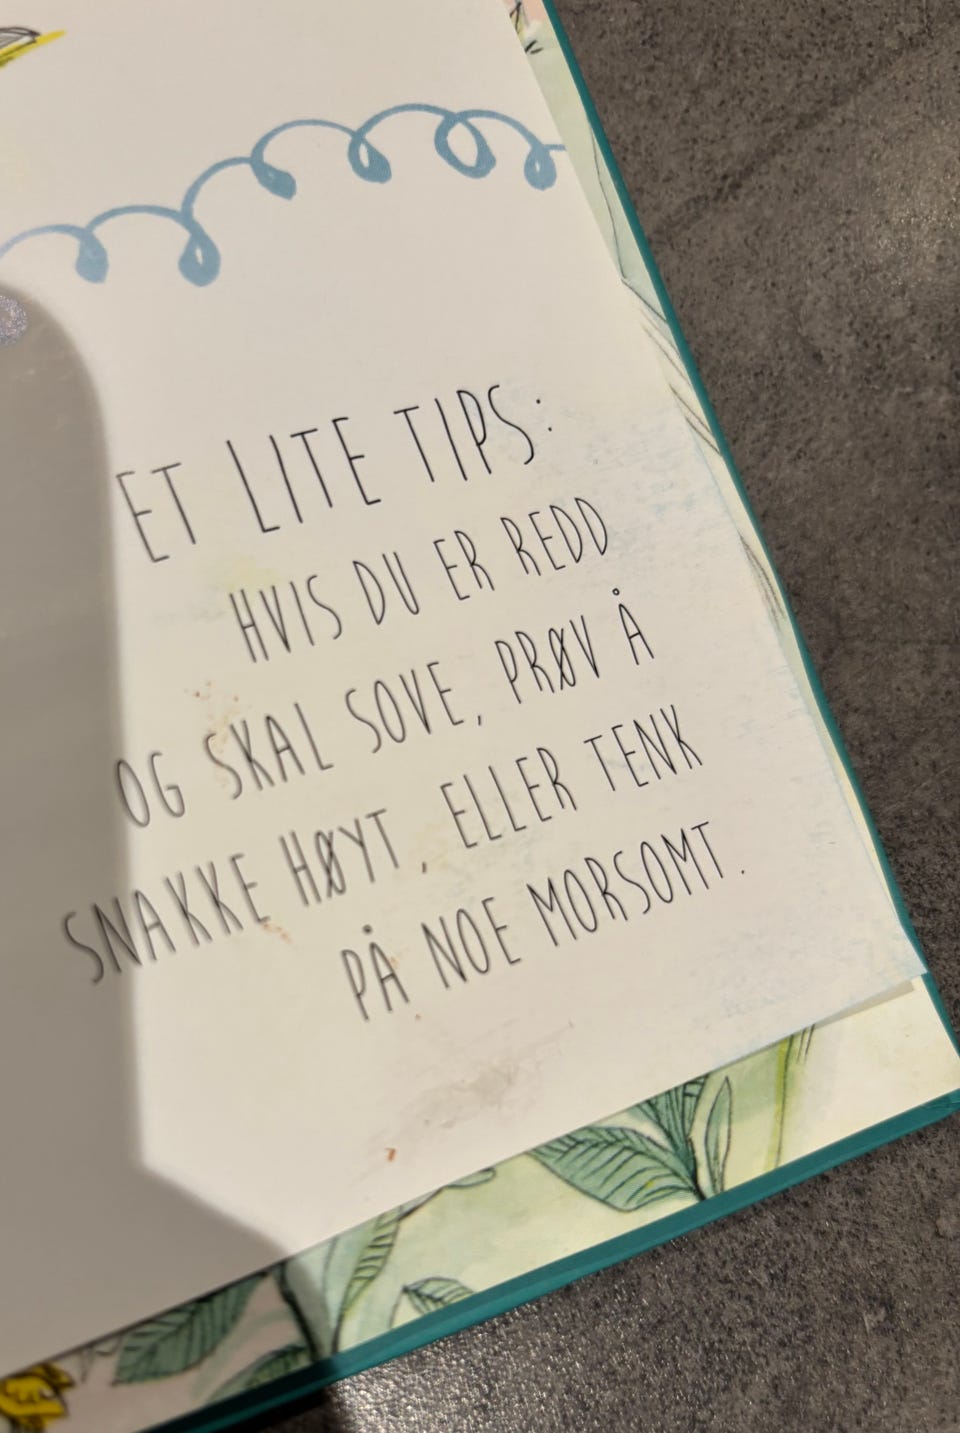 ET LITE TIPS:
HVIS DU ER REDD
OG SKAL SOVE, PRØV Å
SNAKKE HØYT, ELLER TENK
PÅ NOE MORSOMT.